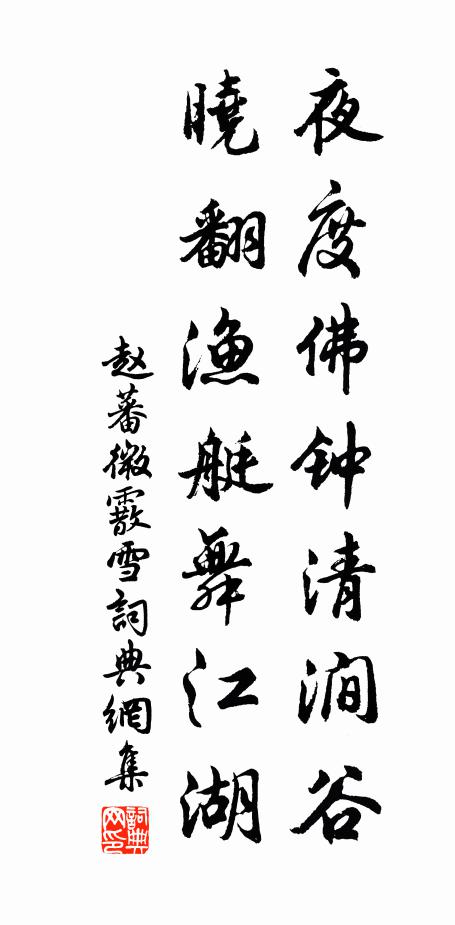 夜度佛钟清涧谷
曉翻渔艇舞江湖
赵蕃微霰雪詞典網集
詞典
网印